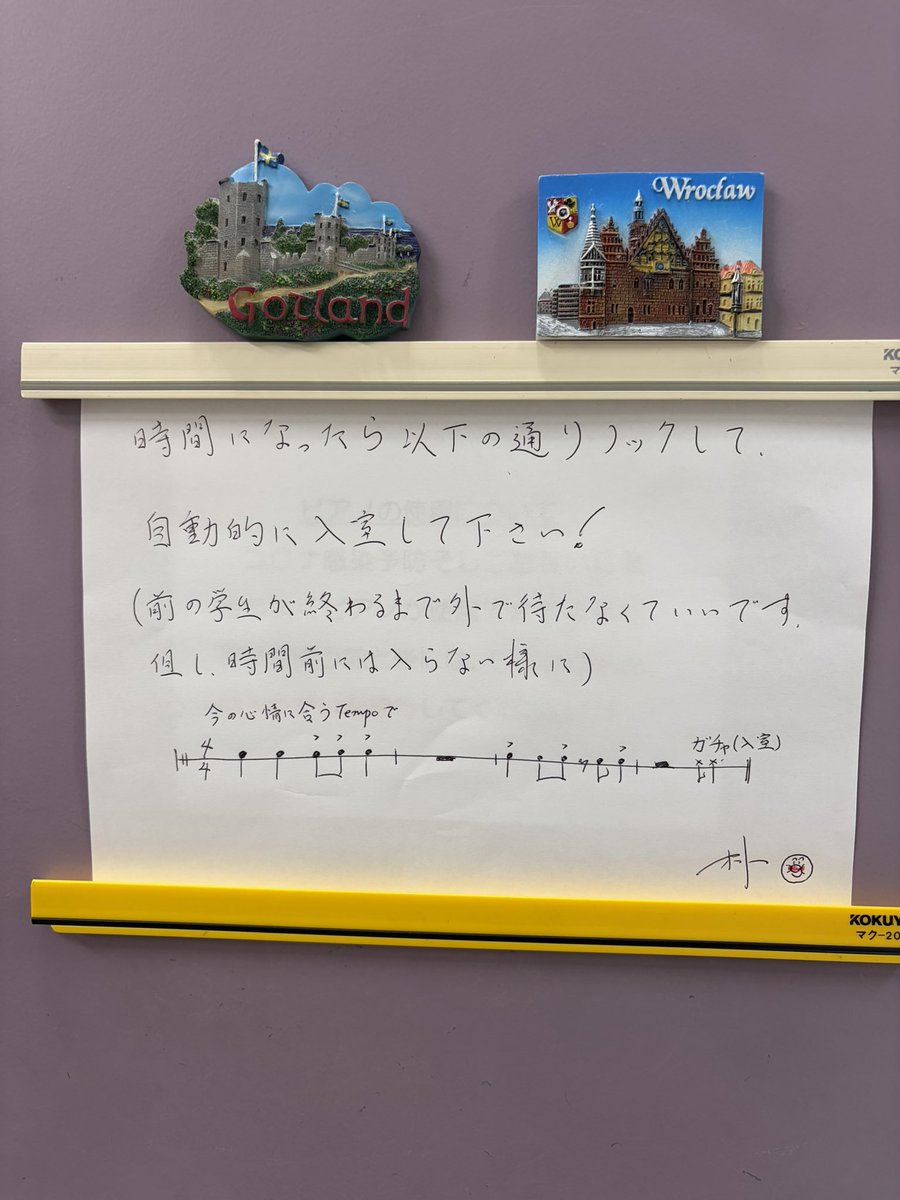 Gotland
Wrocław
W
KO
マ
時間になったら以下の通りノックして、
自動的に入室して下さい!
(前の学生が終わるまで外で待たなくていいです。
但し、時間前には入らない様に)
今の心情に合うTempoで
4
4
ガチャ(入室)
朴
KOKUY
マク-20